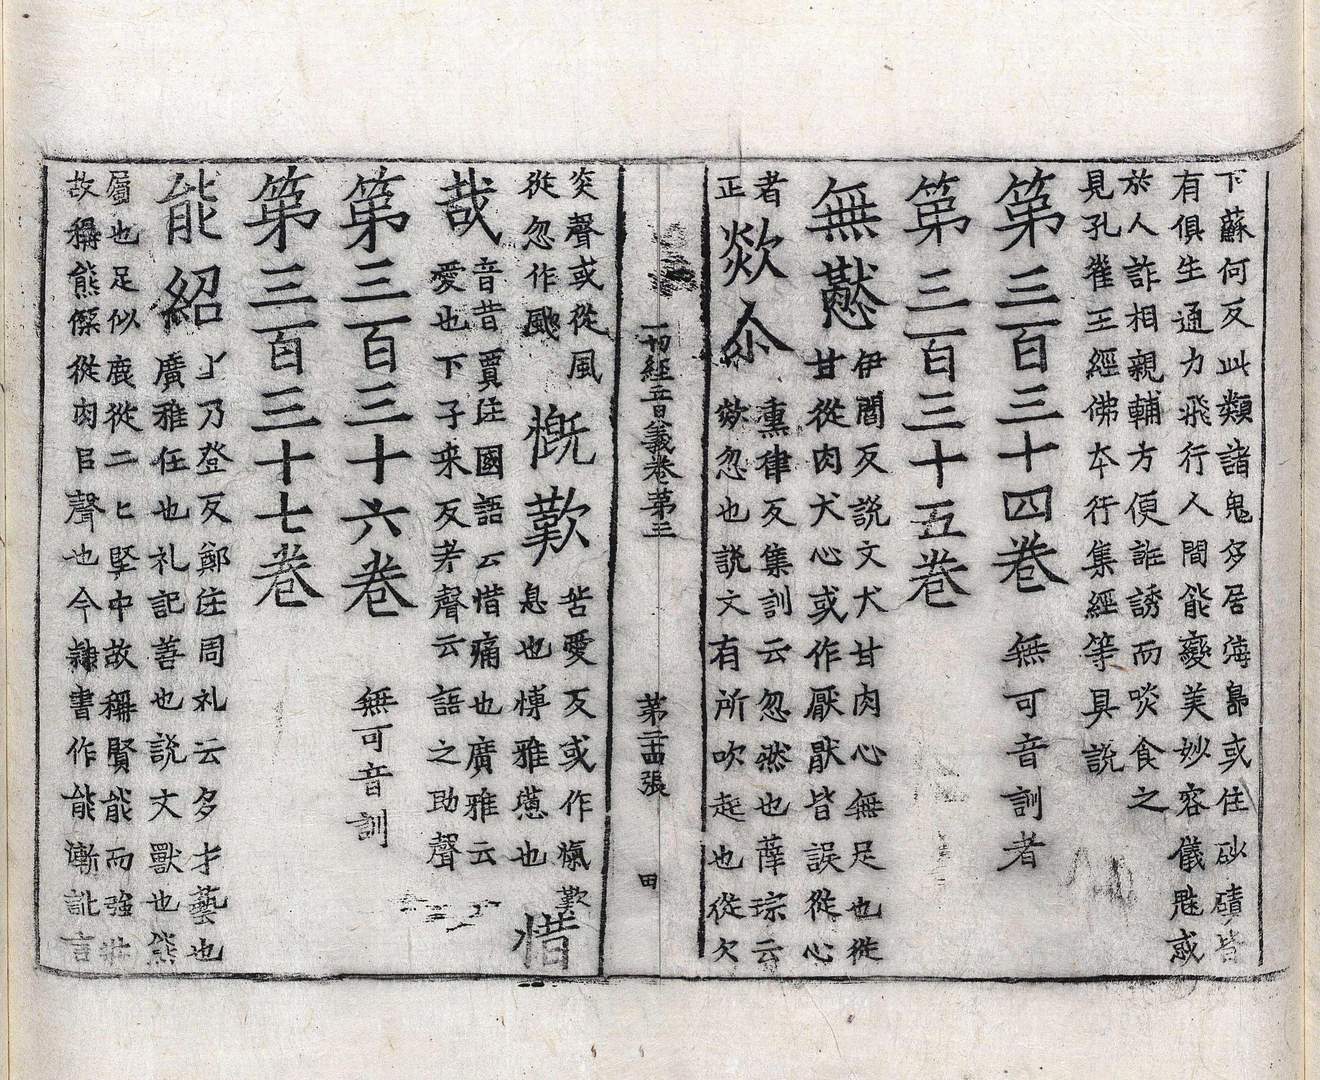 下蘇何反此類諸鬼多居海島或住砂磧皆
有俱生通力飛行人間能變美妙容儀魅惑
於人詐相親輔方便誑誘而啖食之
見孔雀王經佛本行集經等具說
第三百三十四卷 無可音訓者
第三百三十五卷
無猒 伊閻反說文犬甘肉心無足也從
甘從肉犬心或作厭猒皆誤從心
者
正
欻尒 熏律反集訓云忽然也薛琮云
欻忽也說文有所吹起也從欠
一切經音義卷第三 第二十四張 田
炎聲或從風
從忽作颮
慨歎 苦愛反或作愾歎
息也博雅慸也
惜
哉 音昔賈注國語云惜痛也廣雅云
愛也下子来反㦲聲云語之助聲
第三百三十六卷 無可音訓
第三百三十七卷
能紹 上乃登反鄭注周礼云多才藝也
廣雅任也礼記善也說文獸也熊
屬也足似鹿從二匕堅中故稱賢能而強壯
故稱熊傑從肉㠯聲也今隸書作能漸訛言